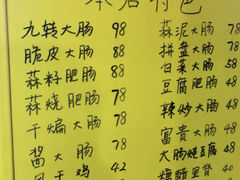 本店特色
九转大肠 98
脆皮大肠 88
蒜籽肥肠 88
蒜烧肥肠 78
干煸大肠 78
酱大肠 48
鸡 42
蒜泥大肠 78
拼盘大肠 78
白菜大肠 58
豆腐肥肠 48
辣炒大肠 48
富贵大肠 48
大肠炖豆腐 48
里脊 38